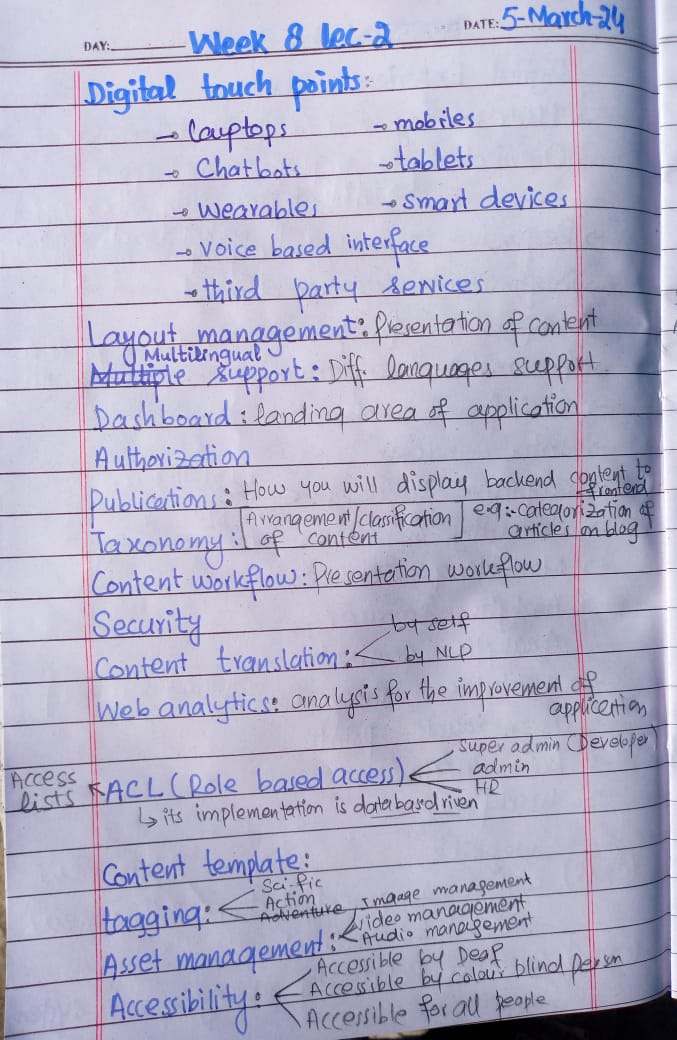 DAY: Week 8 lec-2 DATE: 5-March-24
Digital touch points:-
→ Lauptops → mobiles
→ Chatbots → tablets
→ Wearables → smart devices
→ Voice based interface
→ third party services
Layout management: Presentation of content
Multilingual
Multiple support: Diff. languages support
Dashboard: landing area of application
Authorization
Publications: How you will display backend content to
frontend
Taxonomy: [Arrangement/classification
of content] e.g:- categorization of
articles on blog
Content workflow: Presentation workflow
Security
Content translation: by self
by NLP
Web analytics: analysis for the improvement of
application
Access
lists
ACL (Role based access) super admin (Developer)
admin
HR
↳ its implementation is database driven
Content template:
tagging: Sci-fic
Action
Adventure
Asset management: Image management
video management
Audio management
Accessibility: Accessible by Deaf
Accessible by colour blind person
Accessible for all people